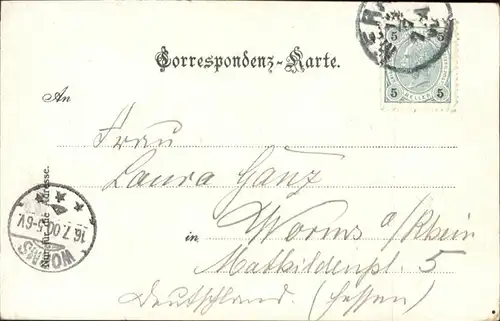 Correspondenz-Karte.
5 5
5 HELLER 5
An
Frau
Laura Ganz
in Worms a/Rhein
Mathildenpl. 5
Deutschland. (Hessen)
Nur für die Adresse.
WORMS
16.7.00.5-6V.